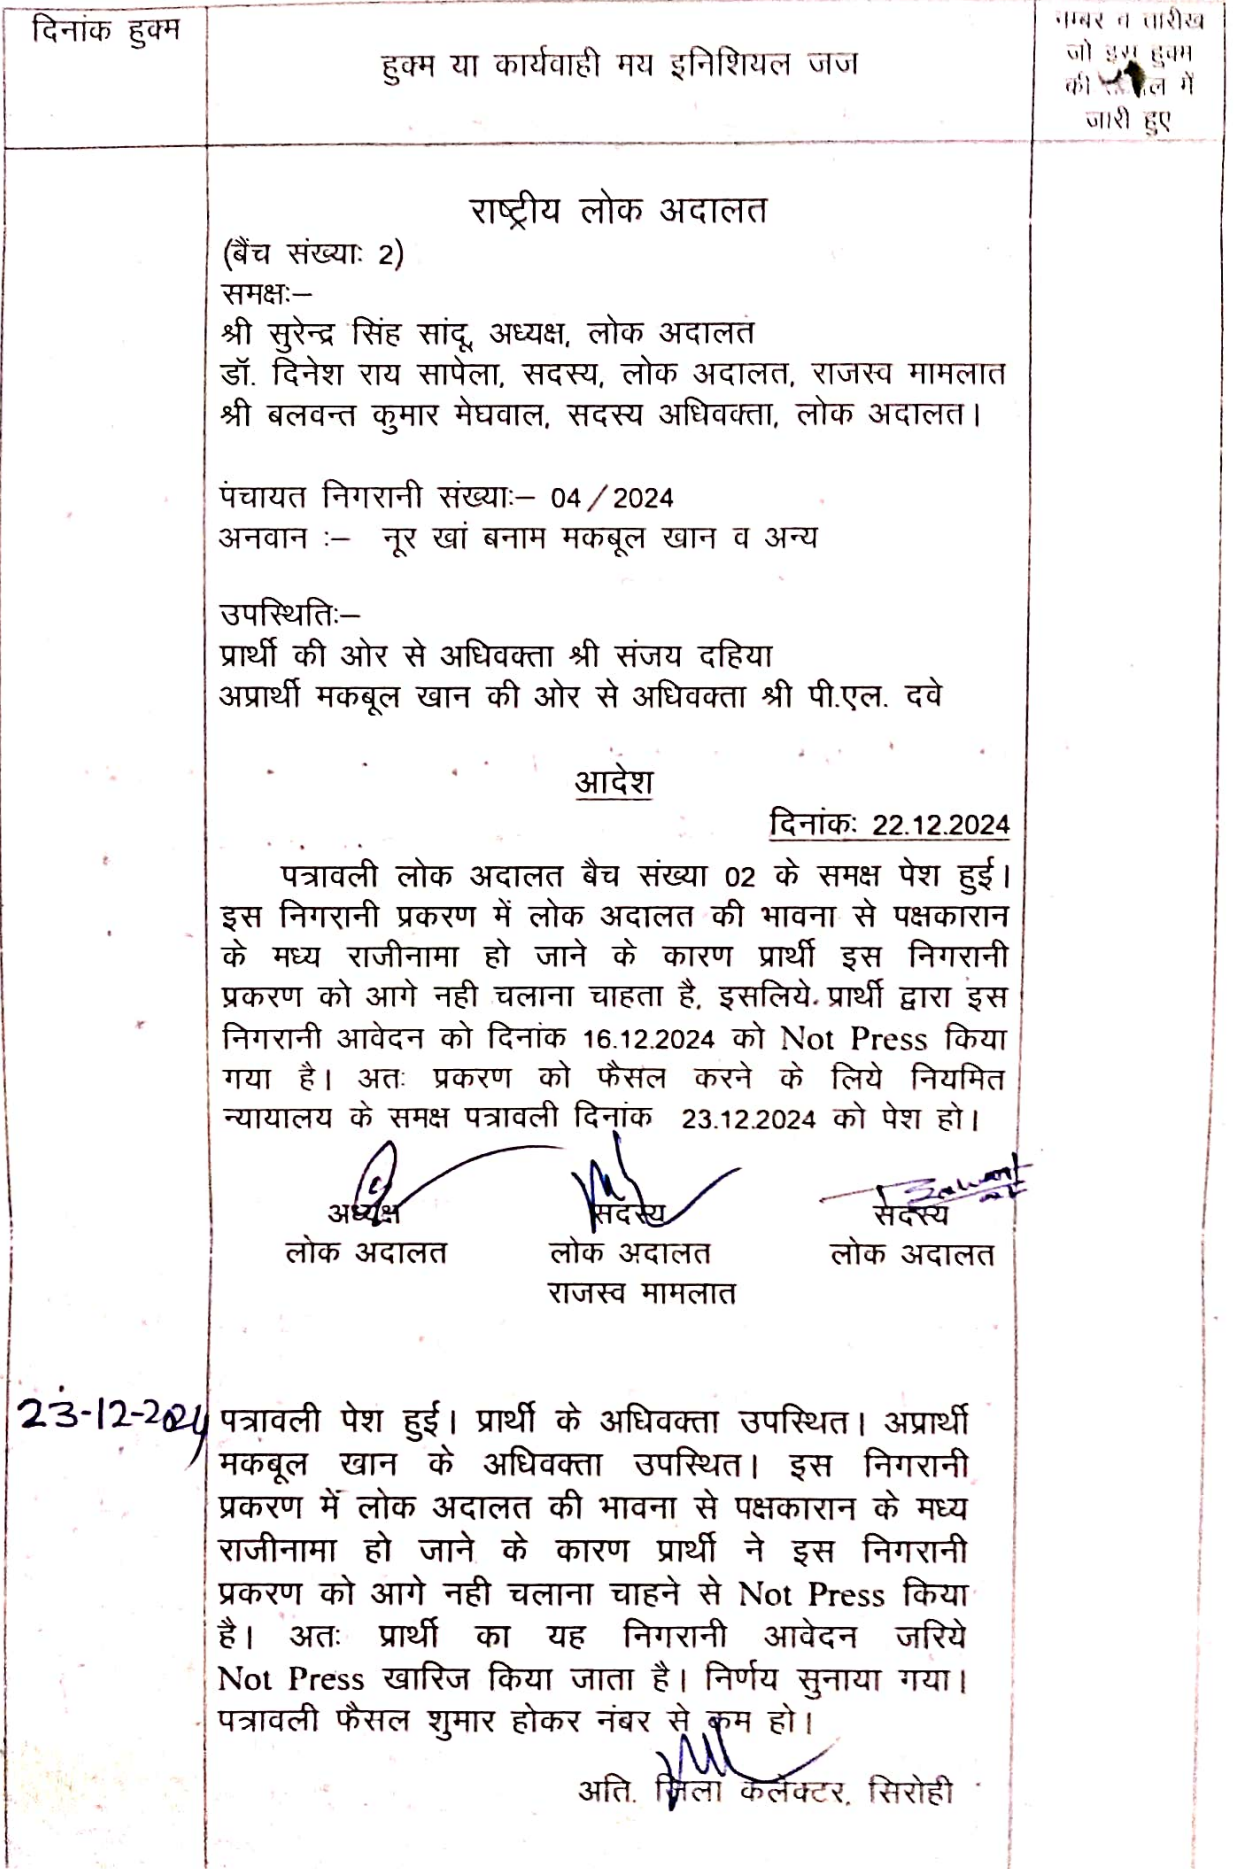 दिनांक हुक्म
हुक्म या कार्यवाही मय इनिशियल जज
नम्बर व तारीख
जो इस हुक्म
की में
जारी हुए
राष्ट्रीय लोक अदालत
(बैंच संख्याः 2)
समक्षः–
श्री सुरेन्द्र सिंह सांदू, अध्यक्ष, लोक अदालत
डॉ. दिनेश राय सापेला, सदस्य, लोक अदालत, राजस्व मामलात
श्री बलवन्त कुमार मेघवाल, सदस्य अधिवक्ता, लोक अदालत।
पंचायत निगरानी संख्याः– 04/2024
अनवान :– नूर खां बनाम मकबूल खान व अन्य
उपस्थितिः–
प्रार्थी की ओर से अधिवक्ता श्री संजय दहिया
अप्रार्थी मकबूल खान की ओर से अधिवक्ता श्री पी.एल. दवे
आदेश
दिनांकः 22.12.2024
पत्रावली लोक अदालत बैच संख्या 02 के समक्ष पेश हुई।
इस निगरानी प्रकरण में लोक अदालत की भावना से पक्षकारान
के मध्य राजीनामा हो जाने के कारण प्रार्थी इस निगरानी
प्रकरण को आगे नही चलाना चाहता है, इसलिये प्रार्थी द्वारा इस
निगरानी आवेदन को दिनांक 16.12.2024 को Not Press किया
गया है। अतः प्रकरण को फैसल करने के लिये नियमित
न्यायालय के समक्ष पत्रावली दिनांक 23.12.2024 को पेश हो।
अध्यक्ष सदस्य सदस्य
लोक अदालत लोक अदालत लोक अदालत
राजस्व मामलात
23-12-2024
पत्रावली पेश हुई। प्रार्थी के अधिवक्ता उपस्थित। अप्रार्थी
मकबूल खान के अधिवक्ता उपस्थित। इस निगरानी
प्रकरण में लोक अदालत की भावना से पक्षकारान के मध्य
राजीनामा हो जाने के कारण प्रार्थी ने इस निगरानी
प्रकरण को आगे नही चलाना चाहने से Not Press किया
है। अतः प्रार्थी का यह निगरानी आवेदन जरिये
Not Press खारिज किया जाता है। निर्णय सुनाया गया।
पत्रावली फैसल शुमार होकर नंबर से कम हो।
अति. जिला कलेक्टर, सिरोही